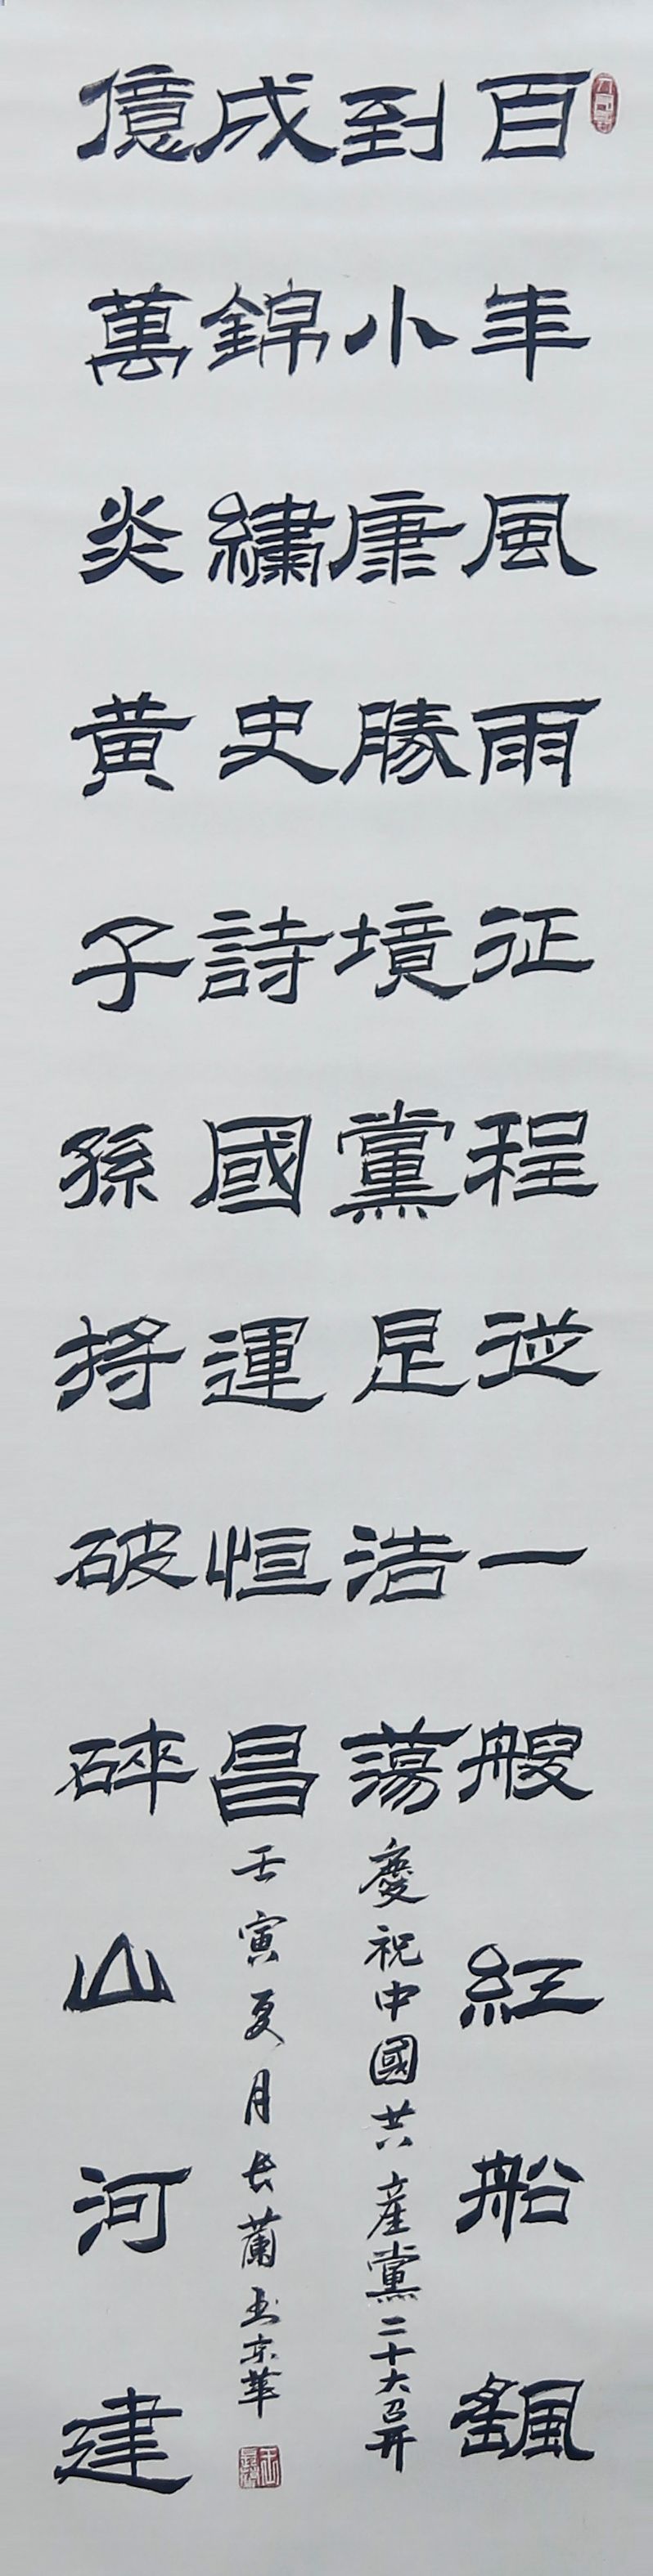 百年風雨征程從一艘紅船颻
到小康勝境黨是浩蕩
慶祝中國共產黨二十大召開
億萬炎黃子孫將破碎山河建
成錦繡史詩國運恒昌
壬寅夏月长蘭玉京華